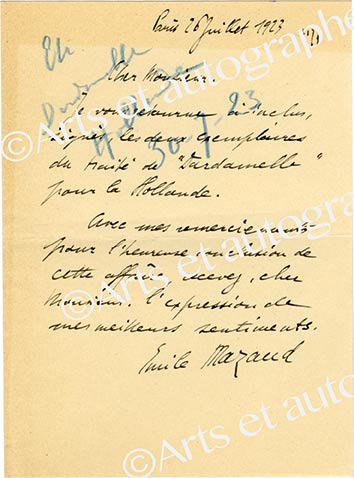 Paris 26 Juillet 1923
Cher Monsieur.
Je vous retourne ci-inclus,
signés les deux exemplaires
du traité de "Dardamelle"
pour la Hollande.
Avec mes remerciements
pour l'heureuse conclusion de
cette affaire, recevez, cher
Monsieur, l'expression de
mes meilleurs sentiments.
Emile Mazaud
Dardamelle
Hollande
30-7-23
©Arts et autographes